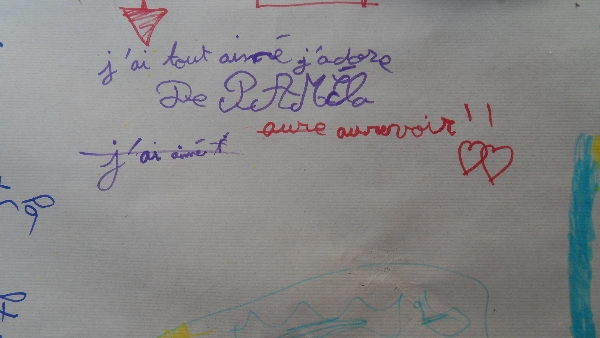 j'ai tout aimé j'adore
De PAMÉla
aure aurevoir !!
j'ai aimé t